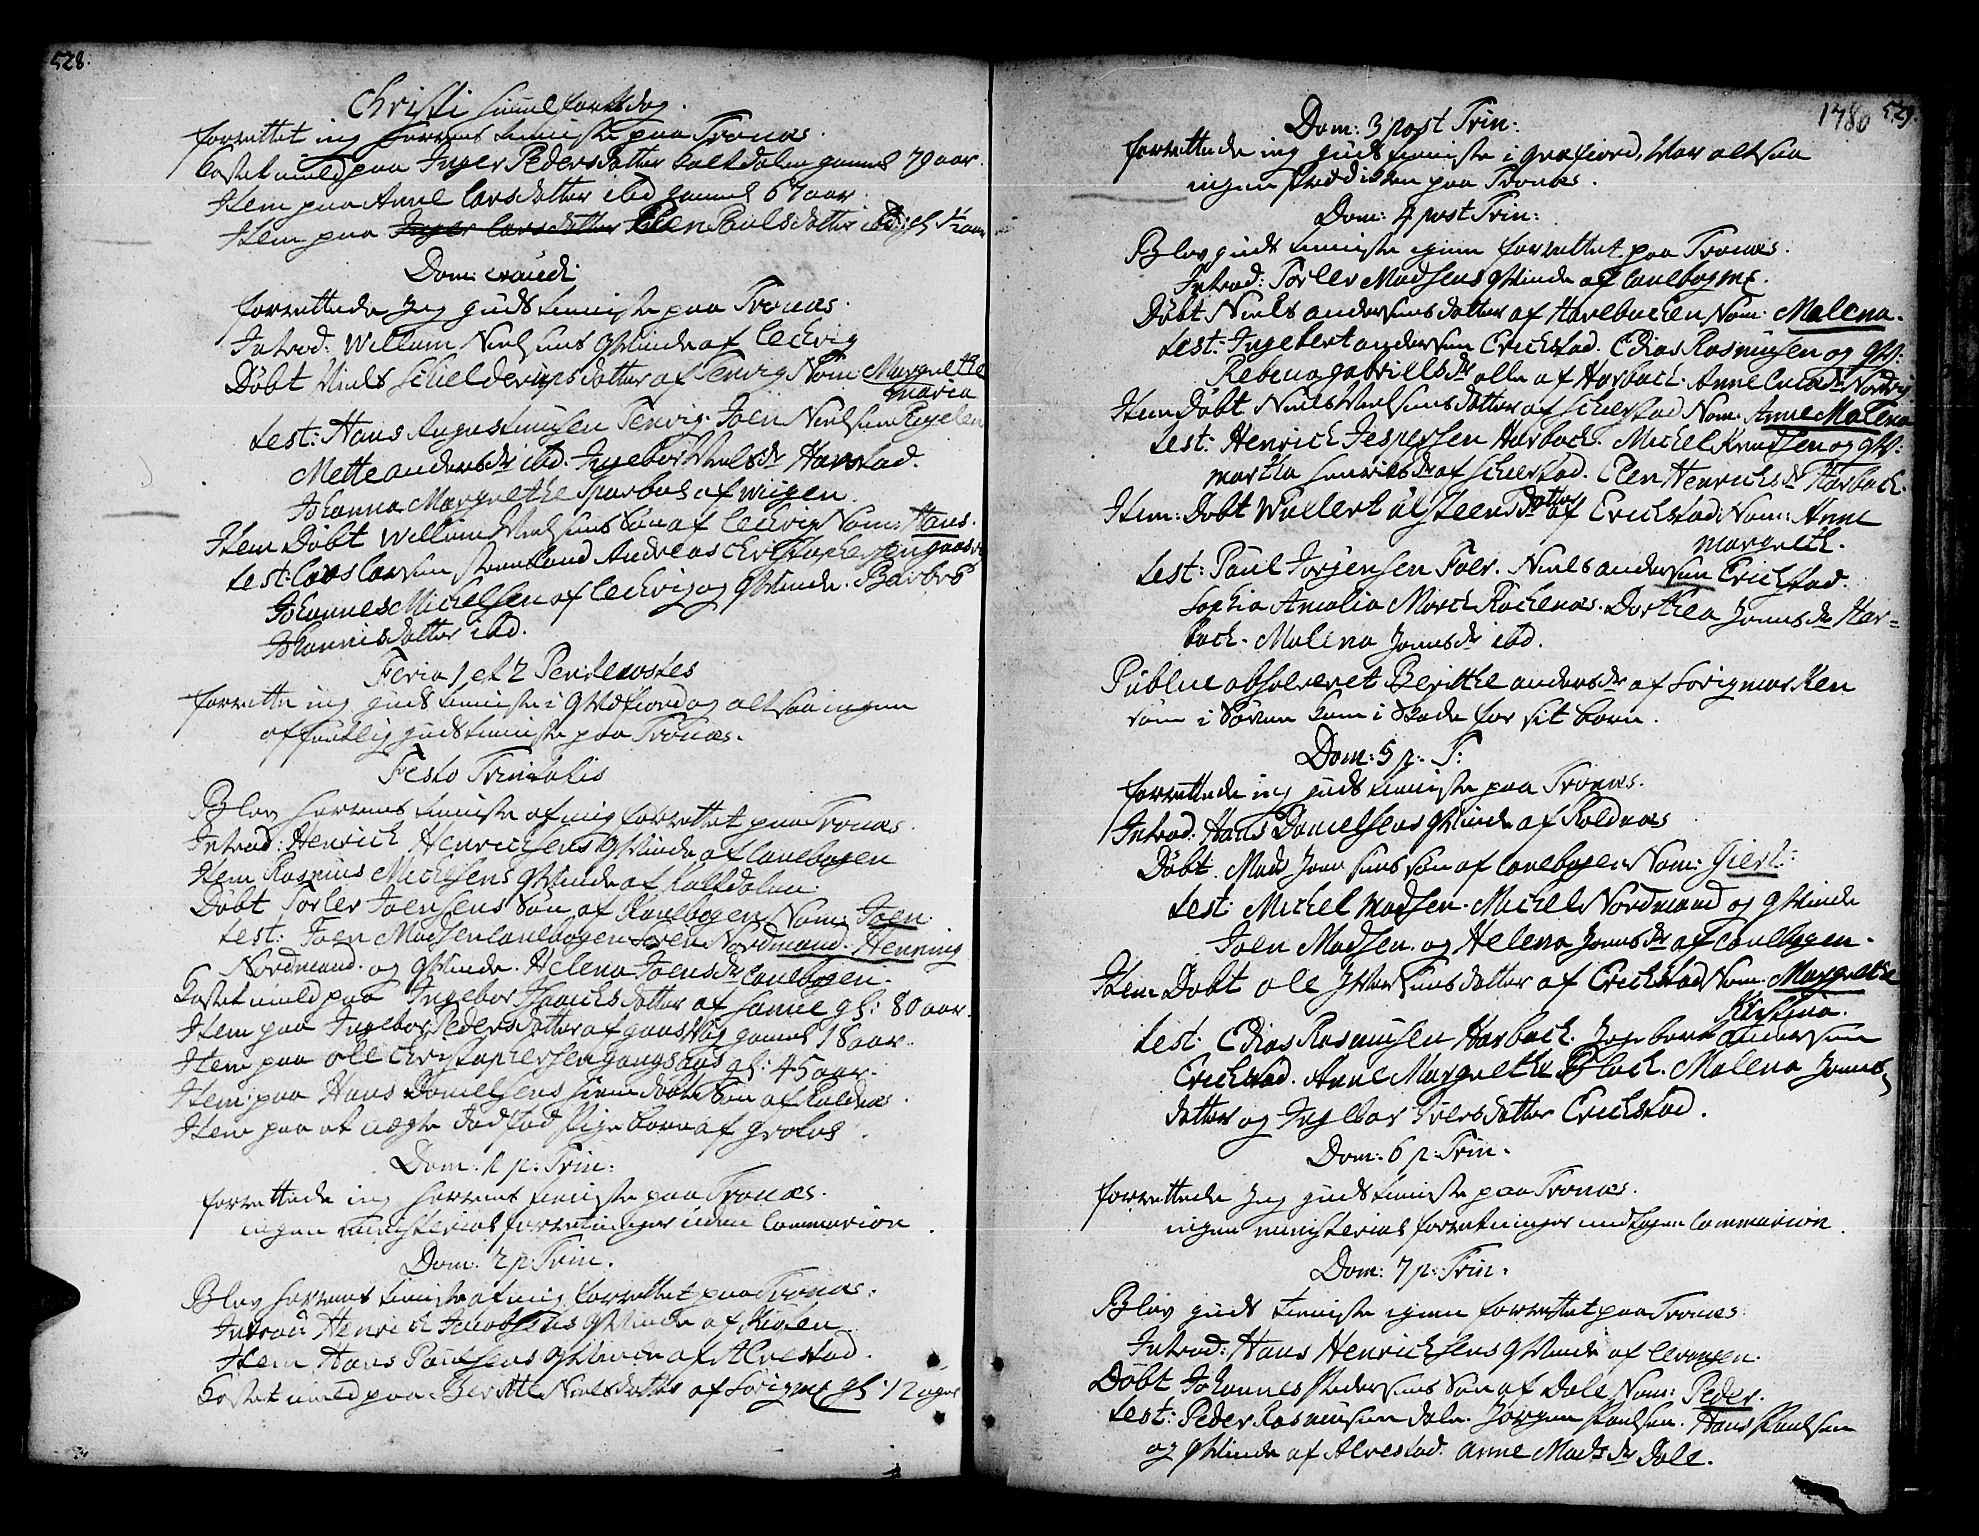 528.
Christi himmelfarts dag.
forrettet jeg Herrens tienniste paa Tronæs.
Castet muld paa Inger Pedersdatter Kaltdalen gammel 79 aar.
Item paa Anne Larsdatter ibd gammel 67 aar
Item paa Inger Larsdatter Ellen Paulsdatter ibd: gl: 1/2 aar
Dom: Exaudi
forrettede Jeg guds tienniste paa Tronæs.
Introd: Willum Nielsens Qvinde af Lechvig
Døbt Niels Schielderups datter af Tenvig Nom Margrethe
Maria
test: Hans Augustinusen Tenvig. Joen Nielsen
Mette andersdr ibd. Ingebor Nielsdr Harstad.
Johanna Margrethe Sparboe af
Item Døbt Willum Nielsens Søn af Lechvig Nom: Hans.
test: Lars Larsen Andreas Christophersen
Johannes Michelsen af Lechvig og Qvinde. Barbro
Johannisdatter ibd.
Feria 1 et 2 Pentecostes
forrette jeg guds tienniste i Qvefiord og altsaa ingen
offentlig guds tienniste paa Tronæs.
Festo Trinitatis
Blev Herrens tienniste af mig forrettet paa Tronæs.
Introd: Henrich Henrichsens Qvinde af Canebogen
Item Rasmus Michelsens Qvinde af Kaltdalen.
Døbt Torler Joensens Søn af Kanebogen Nom: Joen.
test: Joen Madsen Canebogen Soren Nordmand. Henning
Nordmand. og Qvinde. Helena Joensdr Canebogen.
Castet muld paa Ingebor Isaachsdatter af gl: 80 aar.
Item paa Ingebor Pedersdatter af gammel 18 aar.
Item paa Ole Christophersen Gangsaas gl: 45 aar.
Item paa Hans Danielsens hiemdøbte Søn af Roldnæs.
Item paa et uægte dødfød Pige barn af
Dom: 1 p: Trin:
forrettede jeg Herrens tienniste paa Tronæs.
ingen ministerial forretninger uden Communion.
Dom: 2 p: Trin.
Blev Herrens tienniste af mig forrettet paa Tronæs.
Introd: Henrich Jacobsens Qvinde af Kiølen
Item Hans Paulsens Qvinde af Alvestad.
Castet muld paa Beritte Nielsdatter af gl: 12 uger
1780 529.
Dom: 3 post Trin:
forrettede jeg guds tienniste i Qvefiord, War altsaa
ingen Præddiken paa Tronæs.
Dom: 4 post Trin:
Blev guds tienniste igien forrettet paa Tronæs.
Introd: Torler Madsens Qvinde af Canebogne.
Døbt Niels andersens datter af Harebachen Nom: Malena.
test: Ingebert andersen Erichstad. Elias Rasmusen og Qv:
Rebecca gabrielsdr alle af Harbach. Anne
Item Døbt Niels Nielsens datter af Nom. Anne Malena
test: Henrich Jespersen Harbach. Michel Knudsen og Qv:
martha af. Elen Henrichsdr Harbach.
Item: Døbt Wullert Ulsteens datter af Erichstad: Nom: Anne
Margreth.
test: Paul Jørgensen Foer. Niels andersen Erichstad.
Sophia Amalia Morch Rochenæs. Dorthea Joensdr Har=
bach. Malena Joensdr ibd.
Publice absolveret Berithe andersdr af Sørigmarken
som i Søvne kom i Skade for sit barn.
Dom: 5 p: T:
forrettede jeg guds tienniste paa Tronæs.
Introd. Hans Danielsens Qvinde af Roldnæs
Døbt. Mads Joensens Søn af Canebogen Nom: Giert:
test: Michel Madsen. Michel Nordmand og Qvinde
Joen Madsen. og Helena Joensdr af Canebogen.
Item Døbt Ole Iversens datter af Erichstad Nom. Margrethe
Kirstina.
test. Elias Rasmusen Harbach. Ingebert andersen
Erichstad. Anne Margrethe Bloch. Malena Joens
datter og Ingebor Iversdatter Erichstad.
Dom. 6 p: Trin.
forrettede Jeg guds tienniste paa Tronæs.
ingen ministerial forretninger undtagen Communion.
Dom: 7 p: Trin.
Blev guds tienniste igien forrettet paa Tronæs.
Introd: Hans Henrichsens Qvinde af Elvangen.
Døbt Johannes Pedersens Søn af Dale Nom: Peder.
test: Peder Rasmusen dale. Jørgen Paulsen. Hans Paulsen
og Qvinde af Alvestad. Anne Madsdr Dale.